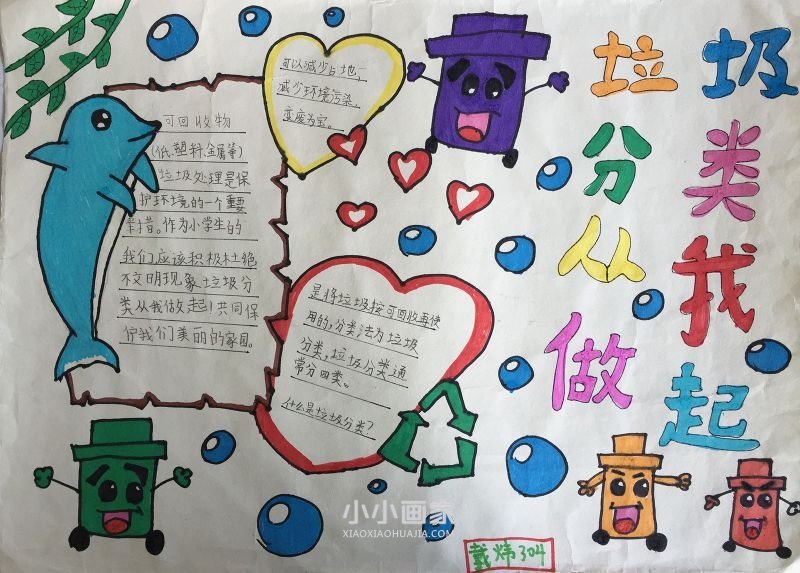 垃圾
分类
从我
做起
可以减少占地、
减少环境污染,
变废为宝。
可回收物
(纸、塑料、金属等)
垃圾处理是保
护环境的一个重要
举措。作为小学生的
我们应该积极杜绝
不文明现象,垃圾分
类从我做起!共同保
护我们美丽的家园。
是将垃圾按可回收再使
用的,分类法为垃圾
分类,垃圾分类通
常分四类。
什么是垃圾分类?
小小画家
XIAOXIAOHUAJIA.COM
戴炜304